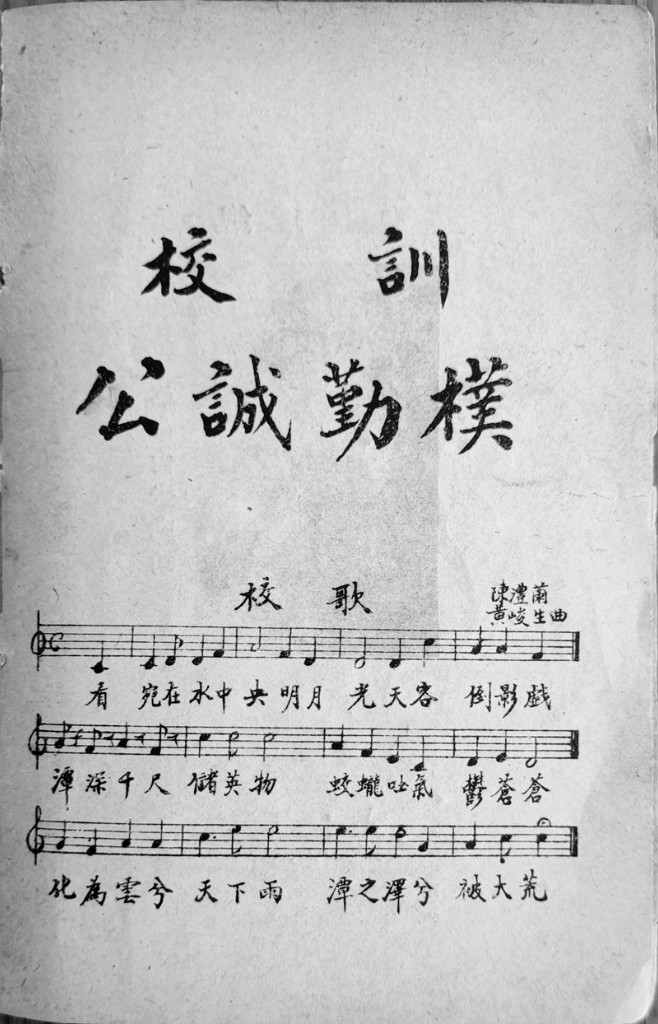 校訓
公誠勤樸
校歌
陳澧蘭
黃峻生曲
看宛在水中央明月光天容倒影戲
潭深千尺儲英物蛟蠬吐氣鬱蒼蒼
化為雲兮天下雨潭之澤兮被大荒